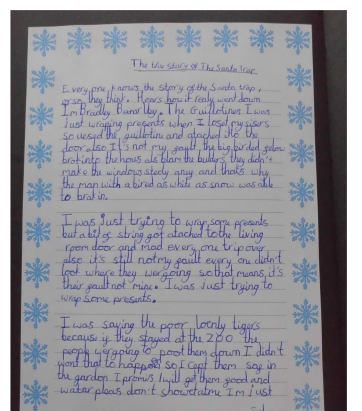 The tru story of The Santa Trap
Every one knows the story of the Santa trap,
orso they think. Hears how it realy went down
I'm Bradley Bartolby. The Guillotines I was
Just wraping presents when I losed my
so useed the guillotine and atached it to the
door also It's not my geault, the big birded
brat into the hous als blam the bulders they didn't
make the windows stady and thats why
the man with a bired as white as snow was able
to brat in.
I was Just trying to wrap some presents
but a bit of string got atached to the living
room door and mad every one trip over
also it's still not my geault every one didn't
loot where they wergoing so that means, it's
their geault not mine. I was Just trying to
wrap some presents.
I was saying the poor loenly tigers
because ig they stayed at the ZOO the
people wergoing to poot them down I didn't
want that to happen so I cept them say in
the garden I promis I will get them good and
watar pleas don't showeratme Im Just